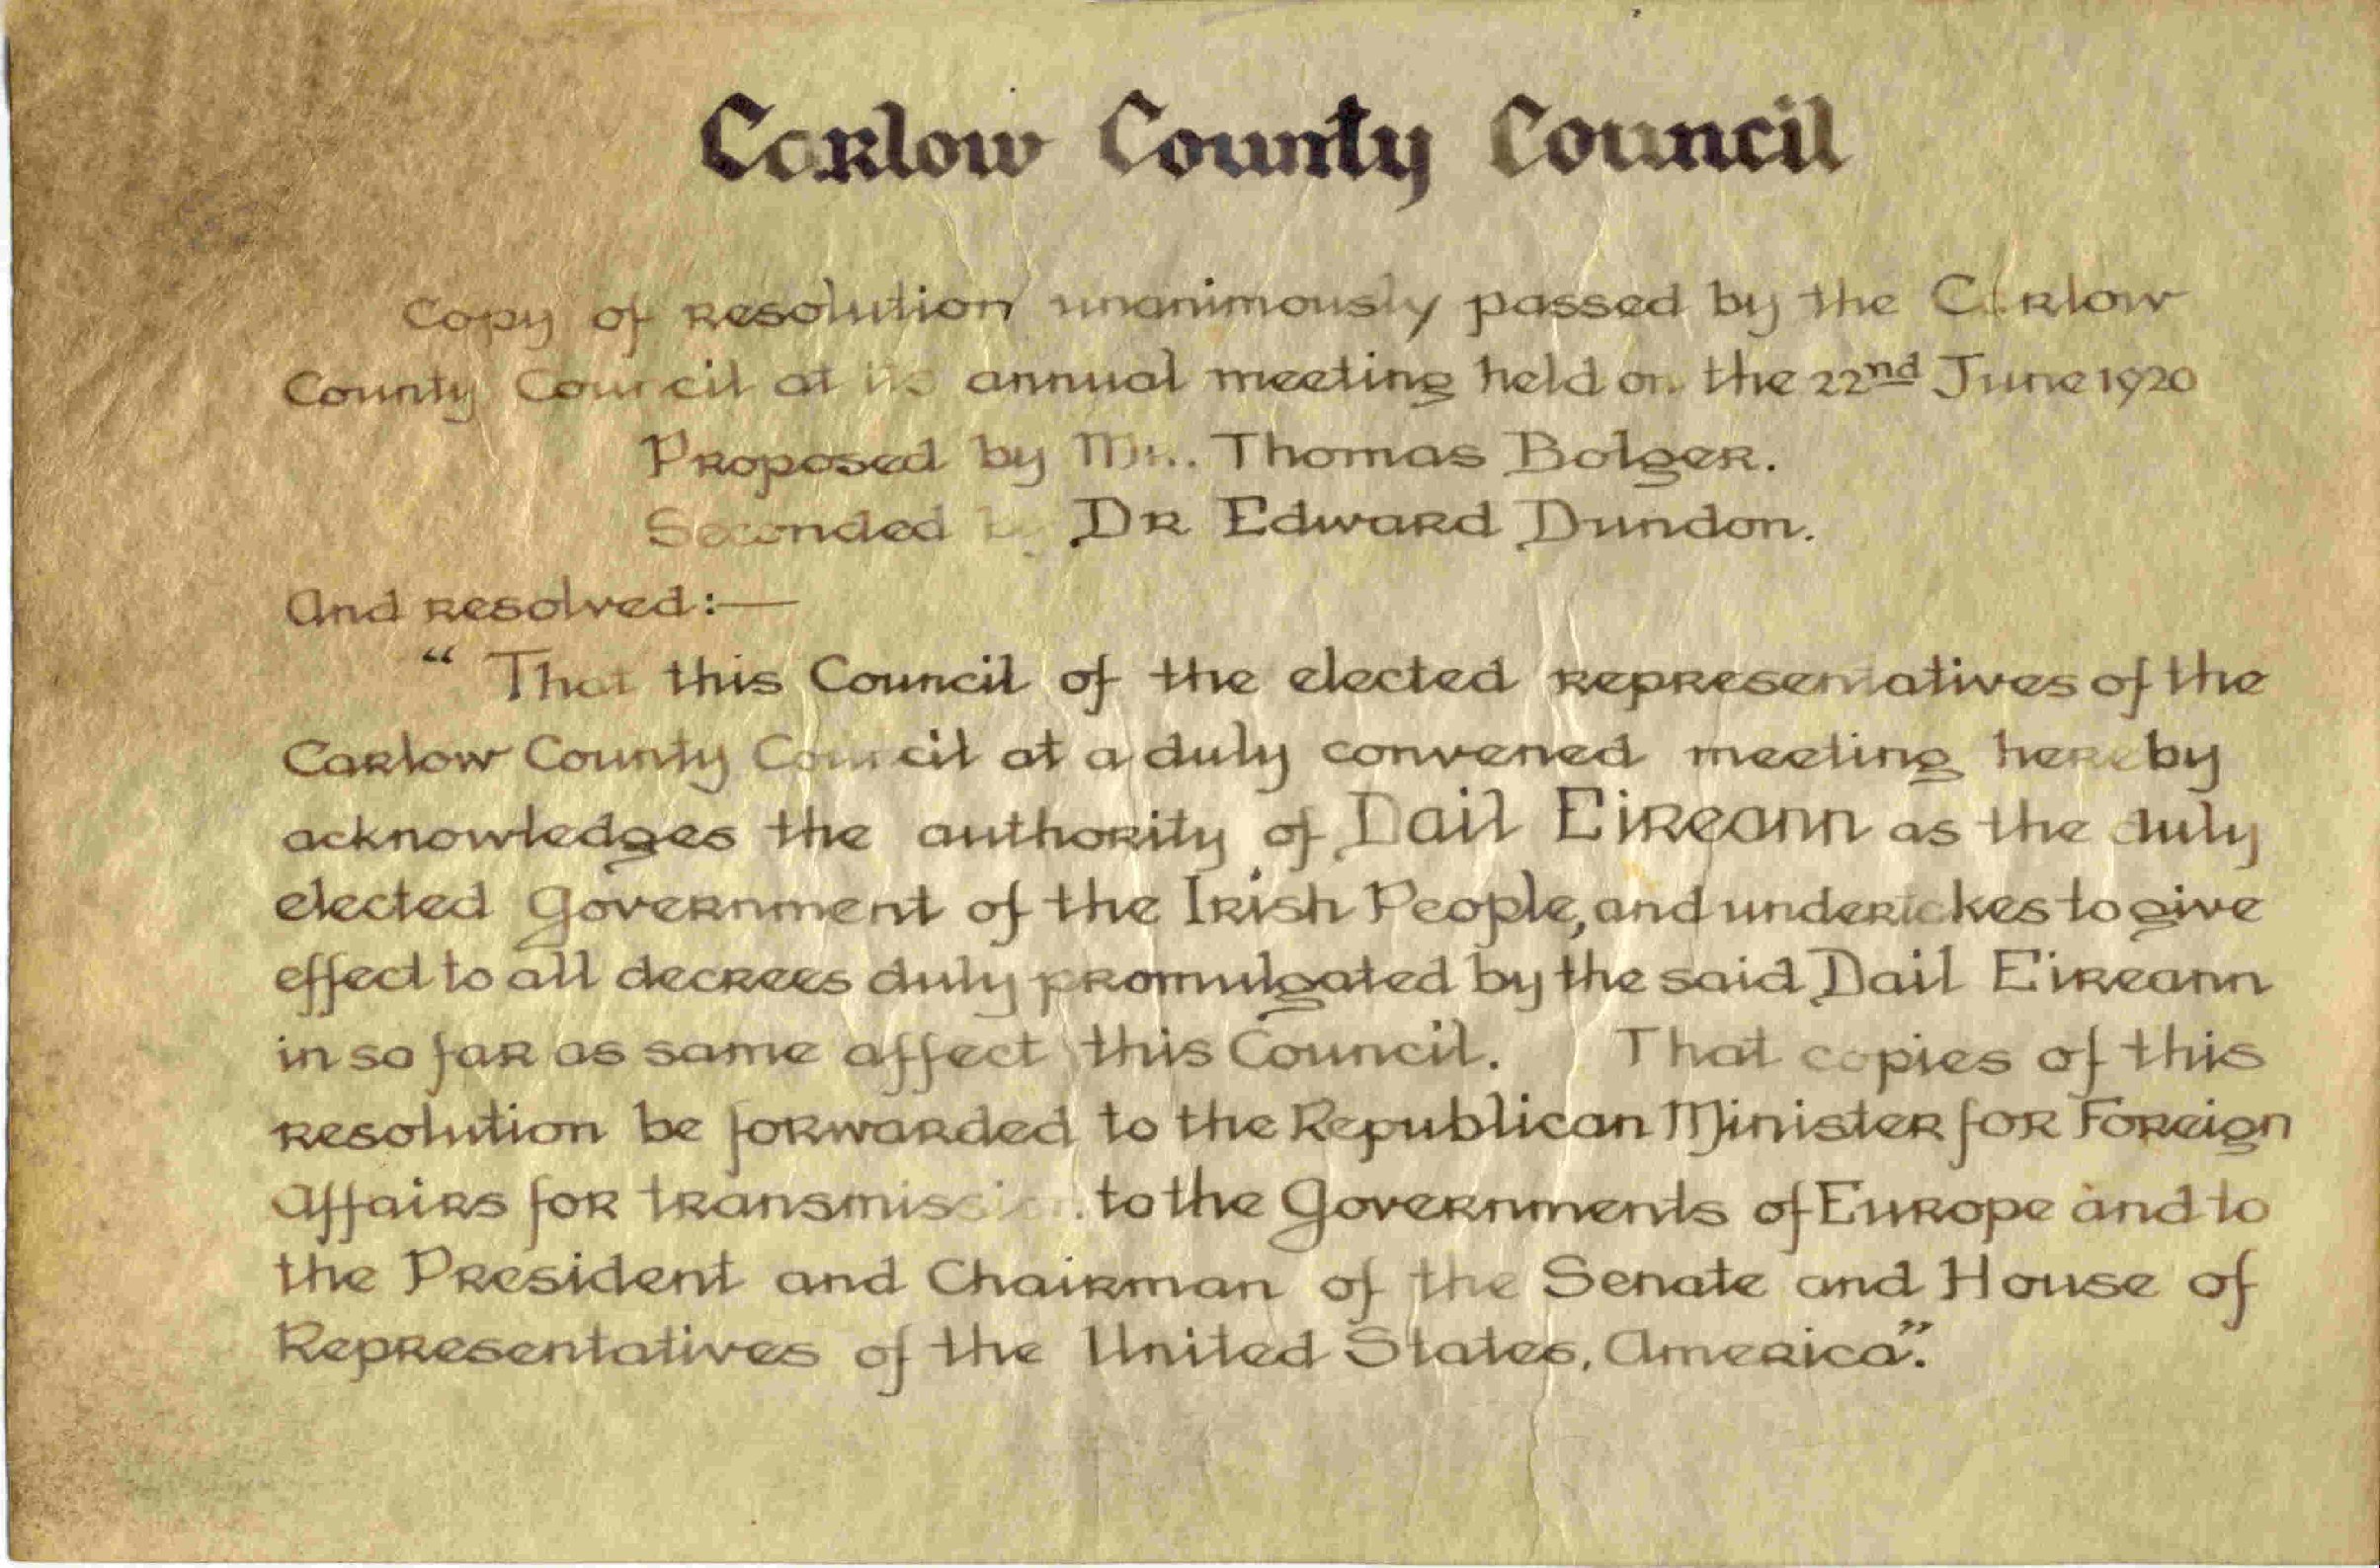 Carlow County Council
Copy of resolution unanimously passed by the Carlow
County Council at its annual meeting held on the 22nd June 1920
Proposed by Mr. Thomas Bolger.
Seconded by Dr Edward Dundon.
And resolved:—
“ That this Council of the elected representatives of the
Carlow County Council at a duly convened meeting hereby
acknowledges the authority of Dail Eireann as the duly
elected Government of the Irish People, and undertakes to give
effect to all decrees duly promulgated by the said Dail Eireann
in so far as same affect this Council. That copies of this
resolution be forwarded to the Republican Minister for Foreign
Affairs for transmission to the Governments of Europe and to
the President and Chairman of the Senate and House of
Representatives of the United States, America”.